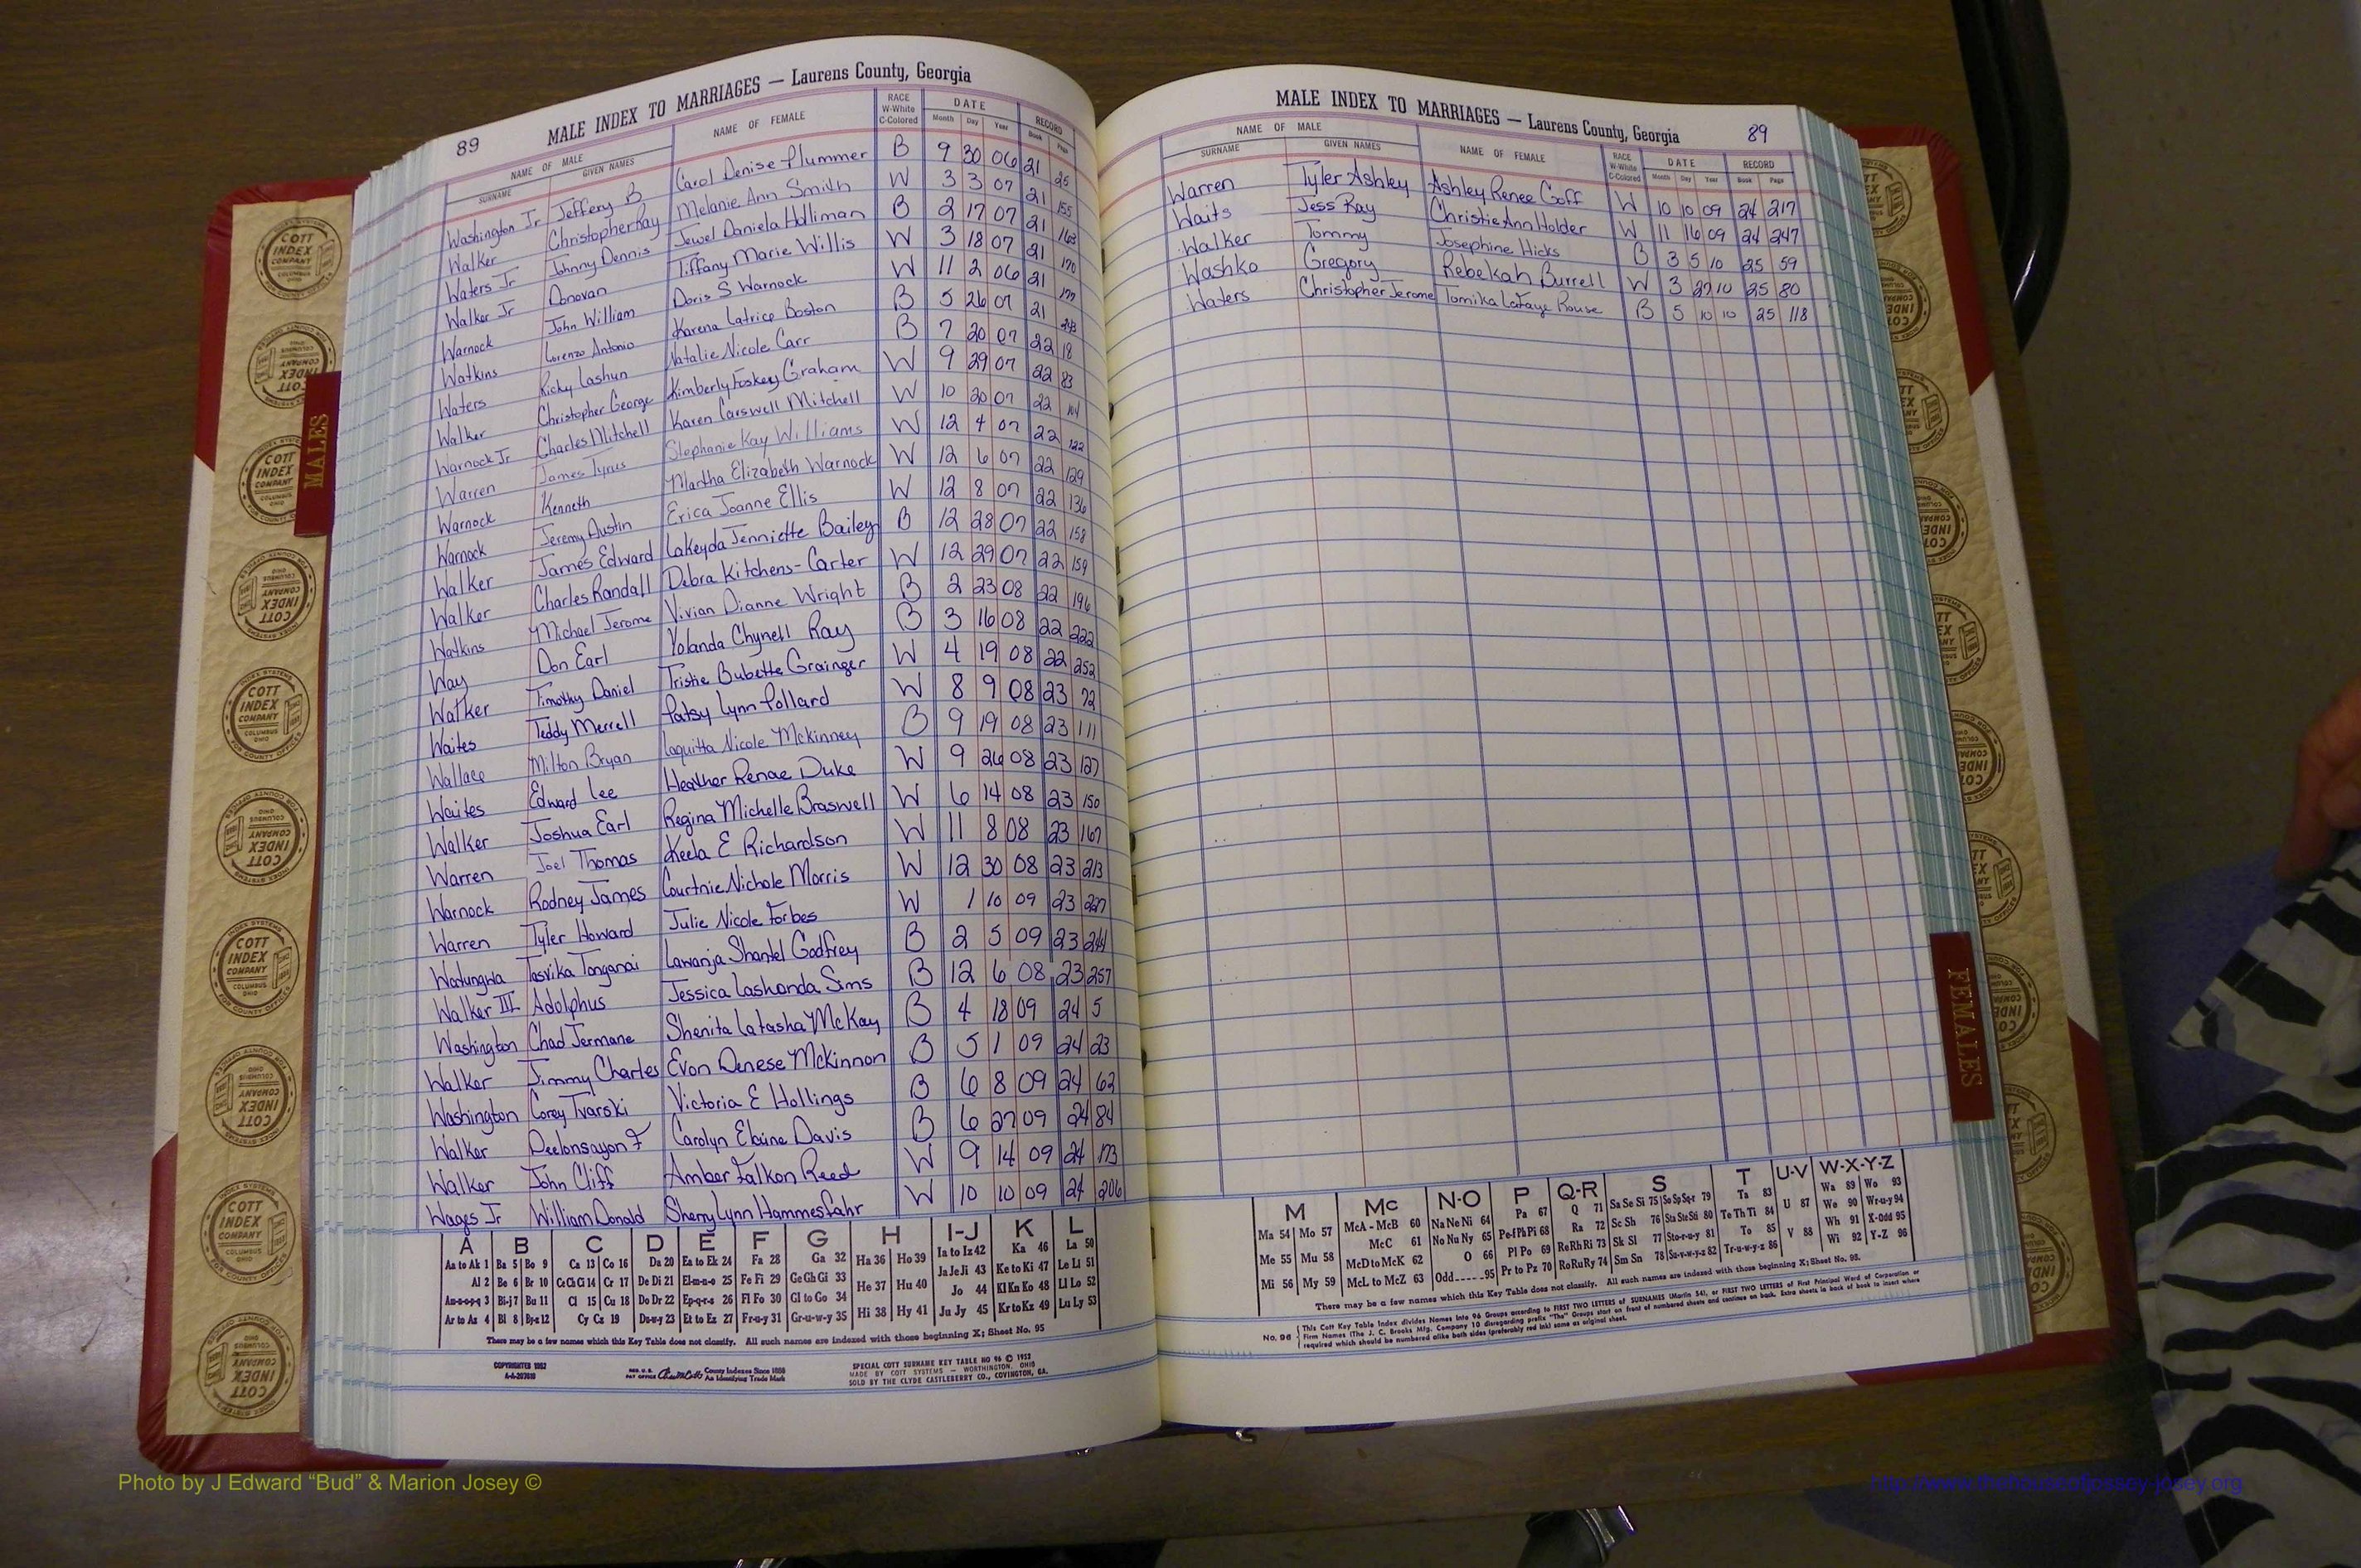 89 MALE INDEX TO MARRIAGES — Laurens County, Georgia
NAME OF MALE NAME OF FEMALE RACE W-White C-Colored DATE RECORD
SURNAME GIVEN NAMES Month Day Year Book Page
Washington Jr Jeffery B Carol Denise Plummer B 9 30 06 21 25
Walker Christopher Ray Melanie Ann Smith W 3 3 07 21 155
Waters Jr Johnny Dennis Jewel Daniela Holliman B 2 17 07 21 163
Walker Jr Donovan Tiffany Marie Willis W 3 18 07 21 170
Warnock John William Doris S Warnock W 11 2 06 21 177
Watkins Lorenzo Antonio Karena Latrice Boston B 5 26 07 21 243
Waters Ricky Lashun Natalie Nicole Carr B 7 20 07 22 18
Walker Christopher George Kimberly Foskey Graham W 9 29 07 22 83
Warnock Jr Charles Mitchell Karen Carswell Mitchell W 10 20 07 22 104
Warren James Tyrus Stephanie Kay Williams W 12 4 07 22 122
Warnock Kenneth Martha Elizabeth Warnock W 12 6 07 22 129
Warnock Jeremy Austin Erica Joanne Ellis W 12 8 07 22 136
Walker James Edward Lakeyda Jenniette Bailey B 12 28 07 22 158
Walker Charles Randall Debra Kitchens-Carter W 12 29 07 22 159
Watkins Michael Jerome Vivian Dianne Wright B 2 23 08 22 196
Way Don Earl Yolanda Chynell Ray B 3 16 08 22 222
Walker Timothy Daniel Tristie Bubette Grainger W 4 19 08 22 252
Waites Teddy Merrell Patsy Lynn Pollard W 8 9 08 23 72
Wallace Milton Bryan Laquitta Nicole Mckinney B 9 19 08 23 111
Waites Edward Lee Heather Renae Duke W 9 26 08 23 127
Walker Joshua Earl Regina Michelle Braswell W 6 14 08 23 150
Warren Joel Thomas Keela E Richardson W 11 8 08 23 167
Warnock Rodney James Courtnie Nichole Morris W 12 30 08 23 213
Warren Tyler Howard Julie Nicole Forbes W 1 10 09 23 227
Wadungwa Tasvika Tonganai Lawanja Shantel Godfrey B 2 5 09 23 244
Walker III Adolphus Jessica Lashonda Sims B 12 6 08 23 257
Washington Chad Jermane Shenita Latasha McKay B 4 18 09 24 5
Walker Jimmy Charles Evon Denese Mckinnon B 5 1 09 24 23
Washington Corey Tvarski Victoria E Hollings B 6 8 09 24 62
Walker Deelonsayon F Carolyn Elaine Davis B 6 27 09 24 84
Walker John Cliff Amber Falkon Reed W 9 14 09 24 173
Wages Jr William Donald Sherry Lynn Hammesfahr W 10 10 09 24 206
A B C D E F G H I-J K L
Aa to Ak 1 Ba 5 Bo 9 Ca 13 Co 16 Da 20 Ea to Ek 24 Fa 28 Ga 32 Ha 36 Ho 39 Ia to Iz 42 Ka 46 La 50
Al 2 Be 6 Br 10 Ce Ch Ci 14 Cr 17 De Di 21 El-m-n-o 25 Fe Fi 29 Ge Gh Gi 33 He 37 Hu 40 Ja Je Ji 43 Ke to Ki 47 Le Li 51
An-o-p-q 3 Bi-j 7 Bu 11 Cl 15 Cu 18 Do Dr 22 Ep-q-r-s 26 Fl Fo 30 Gl to Go 34 Jo 44 Kl Kn Ko 48 Ll Lo 52
Ar to Az 4 Bl 8 By-z 12 Cy Cz 19 Du-w-y 23 Et to Ez 27 Fr-u-y 31 Gr-u-w-y 35 Hi 38 Hy 41 Ju Jy 45 Kr to Kz 49 Lu Ly 53
There may be a few names which this Key Table does not classify. All such names are indexed with those beginning X; Sheet No. 95
COPYRIGHTED 1952
County Indexes Since 1888
An Identifying Trade Mark
SPECIAL COTT SURNAME KEY TABLE NO 96 © 1952
MADE BY COTT SYSTEMS — WORTHINGTON, OHIO
SOLD BY THE CLYDE CASTLEBERRY CO., COVINGTON, GA.
MALE INDEX TO MARRIAGES — Laurens County, Georgia 89
NAME OF MALE NAME OF FEMALE RACE W-White C-Colored DATE RECORD
SURNAME GIVEN NAMES Month Day Year Book Page
Warren Tyler Ashley Ashley Renee Goff W 10 10 09 24 217
Waits Jess Ray Christie Ann Holder W 11 16 09 24 247
Walker Tommy Josephine Hicks B 3 5 10 25 59
Washko Gregory Rebekah Burrell W 3 27 10 25 80
Waters Christopher Jerome Tomika LaFaye Rouse B 5 10 10 25 118
M Mc N-O P Q-R S T U-V W-X-Y-Z
Ma 54 Mo 57 McA - McB 60 Na Ne Ni 64 Pa 67 Q 71 Sa Se Si 75 So Sp Sq-r 79 Ta 83 U 87 Wa 89 Wo 93
Me 55 Mu 58 McC 61 No Nu Ny 65 Pe-f Ph Pi 68 Ra 72 Sc Sh 76 Sta Ste Sti 80 Te Th Ti 84 We 90 Wr-u-y 94
Mi 56 My 59 McD to McK 62 O 66 Pl Po 69 Re Rh Ri 73 Sk Sl 77 Sto-r-u-y 81 To 85 V 88 Wh 91 X-Odd 95
McL to McZ 63 Odd 95 Pr to Pz 70 Ro Ru Ry 74 Sm Sn 78 Su-v-w-y-z 82 Tr-u-w-y-z 86 Wi 92 Y-Z 96
There may be a few names which this Key Table does not classify. All such names are indexed with those beginning X; Sheet No. 95.
No. 96 This Cott Key Table Index divides Names into 96 Groups according to FIRST TWO LETTERS of SURNAMES (Martin 54), or FIRST TWO LETTERS of First Principal Word of Corporation or
Firm Names (The J. C. Brooks Mfg. Company 10 disregarding prefix "The") Groups start on front of numbered sheets and continue on back. Extra sheets in back of book to insert where
required which should be numbered alike both sides (preferably red ink) same as original sheet.
MALES
FEMALES
COTT INDEX COMPANY COLUMBUS OHIO
INDEX SYSTEMS FOR COUNTY OFFICES
Photo by J Edward “Bud” & Marion Josey ©